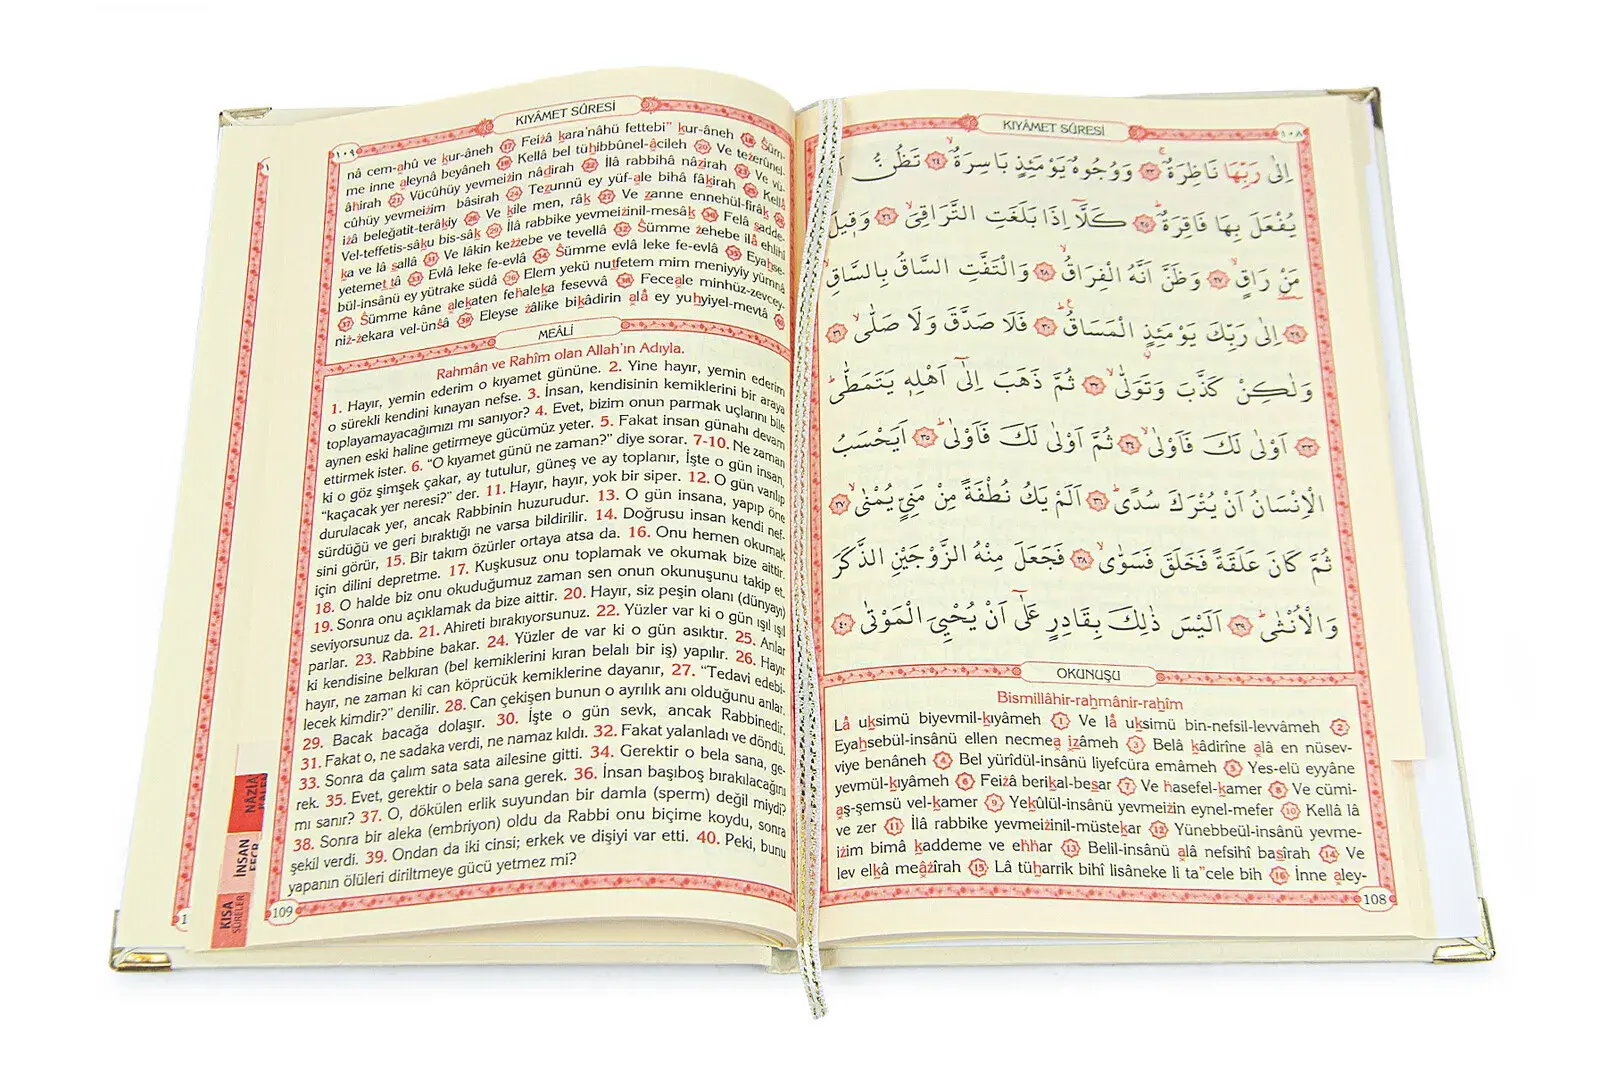 KIYÂMET SÛRESİ
١٠٨
اِلٰى رَبِّهَا نَاظِرَةٌۚ ٢٣ وَوُجُوهٌ يَوْمَئِذٍ بَاسِرَةٌۙ ٢٤ تَظُنُّ
يُفْعَلَ بِهَا فَاقِرَةٌۜ ٢٥ كَلَّٓا اِذَا بَلَغَتِ التَّرَاقِيَۙ ٢٦ وَق۪يلَ
مَنْ رَاقٍۙ ٢٧ وَظَنَّ اَنَّهُ الْفِرَاقُۙ ٢٨ وَالْتَفَّتِ السَّاقُ بِالسَّاقِۙ
٢٩ اِلٰى رَبِّكَ يَوْمَئِذٍۨ الْمَسَاقُۜ ٣٠ فَلَا صَدَّقَ وَلَا صَلّٰىۙ ٣١
وَلٰكِنْ كَذَّبَ وَتَوَلّٰىۙ ٣٢ ثُمَّ ذَهَبَ اِلٰٓى اَهْلِه۪ يَتَمَطّٰىۜ
٣٣ اَوْلٰى لَكَ فَاَوْلٰىۙ ٣٤ ثُمَّ اَوْلٰى لَكَ فَاَوْلٰىۜ ٣٥ اَيَحْسَبُ
الْاِنْسَانُ اَنْ يُتْرَكَ سُدًىۜ ٣٦ اَلَمْ يَكُ نُطْفَةً مِنْ مَنِيٍّ يُمْنٰىۙ ٣٧
ثُمَّ كَانَ عَلَقَةً فَخَلَقَ فَسَوّٰىۙ ٣٨ فَجَعَلَ مِنْهُ الزَّوْجَيْنِ الذَّكَرَ
وَالْاُنْثٰىۜ ٣٩ اَلَيْسَ ذٰلِكَ بِقَادِرٍ عَلٰٓى اَنْ يُحْيِيَ الْمَوْتٰى ٤٠
OKUNUŞU
Bismillâhir-rahmânir-rahîm
Lâ uksimü biyevmil-kıyâmeh 1 Ve lâ uksimü bin-nefsil-levvâmeh 2
Eyahsebül-insânü ellen necmea izâmeh 3 Belâ kâdirîne alâ en nüsev-
viye benâneh 4 Bel yürîdül-insânü liyefcüra emâmeh 5 Yes-elü eyyâne
yevmül-kıyâmeh 6 Feizâ berikal-besar 7 Ve hasefel-kamer 8 Ve cümi-
aş-şemsü vel-kamer 9 Yekûlül-insânü yevmeizin eynel-mefer 10 Kellâ lâ
ve zer 11 İlâ rabbike yevmeizinil-müstekar 12 Yünebbeül-insânü yevme-
izim bimâ kaddeme ve ehhar 13 Belil-insânü alâ nefsihî basîrah 14 Ve
lev elkâ meâzîrah 15 Lâ tüharrik bihî lisâneke li ta"cele bih 16 İnne aley-
108
KIYÂMET SÛRESİ
١٠٩
nâ cem-ahû ve kur-âneh 17 Feizâ kara'nâhü fettebi" kur-âneh 18 Süm-
me inne aleynâ beyâneh 19 Kellâ bel tühibbûnel-âcileh 20 Ve tezerûnel-
âhirah 21 Vücûhüy yevmeizin nâdirah 22 İlâ rabbihâ nâzirah 23 Ve vü-
cûhüy yevmeizim bâsirah 24 Tezunnü ey yüf-ale bihâ fâkirah 25 Kellâ
izâ beleğatit-terâkiy 26 Ve kîle men, râk 27 Ve zanne ennehül-firâk 28
Vel-teffetis-sâku bis-sâk 29 İlâ rabbike yevmeizinil-mesâk 30 Felâ sadde-
ka ve lâ sallâ 31 Ve lâkin kezzebe ve tevellâ 32 Sümme zehebe ilâ ehlihî
yetemettâ 33 Evlâ leke fe-evlâ 34 Sümme evlâ leke fe-evlâ 35 Eyahse-
bül-insânü ey yütrake südâ 36 Elem yekü nutfetem mim meniyyiy yümnâ
37 Sümme kâne alekaten fehaleka fesevvâ 38 Feceale minhüz-zevcey-
niz-zekara vel-ünsâ 39 Eleyse zâlike bikâdirin alâ ey yuhyiyel-mevtâ 40
MEÂLİ
Rahmân ve Rahîm olan Allah'ın Adıyla.
1. Hayır, yemin ederim o kıyamet gününe. 2. Yine hayır, yemin ederim
o sürekli kendini kınayan nefse. 3. İnsan, kendisinin kemiklerini bir araya
toplayamayacağımızı mı sanıyor? 4. Evet, bizim onun parmak uçlarını bile
aynen eski haline getirmeye gücümüz yeter. 5. Fakat insan günahı devam
ettirmek ister. 6. "O kıyamet günü ne zaman?" diye sorar. 7-10. Ne zaman
ki o göz şimşek çakar, ay tutulur, güneş ve ay toplanır, İşte o gün insan,
"kaçacak yer neresi?" der. 11. Hayır, hayır, yok bir siper. 12. O gün varılıp
durulacak yer, ancak Rabbinin huzurudur. 13. O gün insana, yapıp öne
sürdüğü ve geri bıraktığı ne varsa bildirilir. 14. Doğrusu insan kendi nef-
sini görür, 15. Bir takım özürler ortaya atsa da. 16. Onu hemen okumak
için dilini depretme. 17. Kuşkusuz onu toplamak ve okumak bize aittir.
18. O halde biz onu okuduğumuz zaman sen onun okunuşunu takip et.
19. Sonra onu açıklamak da bize aittir. 20. Hayır, siz peşin olanı (dünyayı)
seviyorsunuz da. 21. Ahireti bırakıyorsunuz. 22. Yüzler var ki o gün ışıl ışıl
parlar. 23. Rabbine bakar. 24. Yüzler de var ki o gün asıktır. 25. Anlar
ki kendisine belkıran (bel kemiklerini kıran belalı bir iş) yapılır. 26. Hayır
hayır, ne zaman ki can köprücük kemiklerine dayanır, 27. "Tedavi edebi-
lecek kimdir?" denilir. 28. Can çekişen bunun o ayrılık anı olduğunu anlar.
29. Bacak bacağa dolaşır. 30. İşte o gün sevk, ancak Rabbinedir.
31. Fakat o, ne sadaka verdi, ne namaz kıldı. 32. Fakat yalanladı ve döndü,
33. Sonra da çalım sata sata ailesine gitti. 34. Gerektir o bela sana, ge-
rek. 35. Evet, gerektir o bela sana gerek. 36. İnsan başıboş bırakılacağını
mı sanır? 37. O, dökülen erlik suyundan bir damla (sperm) değil miydi?
38. Sonra bir aleka (embriyon) oldu da Rabbi onu biçime koydu, sonra
şekil verdi. 39. Ondan da iki cinsi; erkek ve dişiyi var etti. 40. Peki, bunu
yapanın ölüleri diriltmeye gücü yetmez mi?
109
İNSAN
KISA
SÛRELER